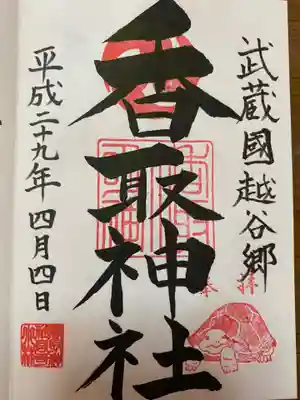 武蔵國越谷郷
奉拝
香取神社
平成二十九年四月四日